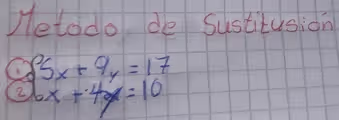 Metodo de Sustitusión
① 5x + 9y = 17
② 6x + 4y = 10